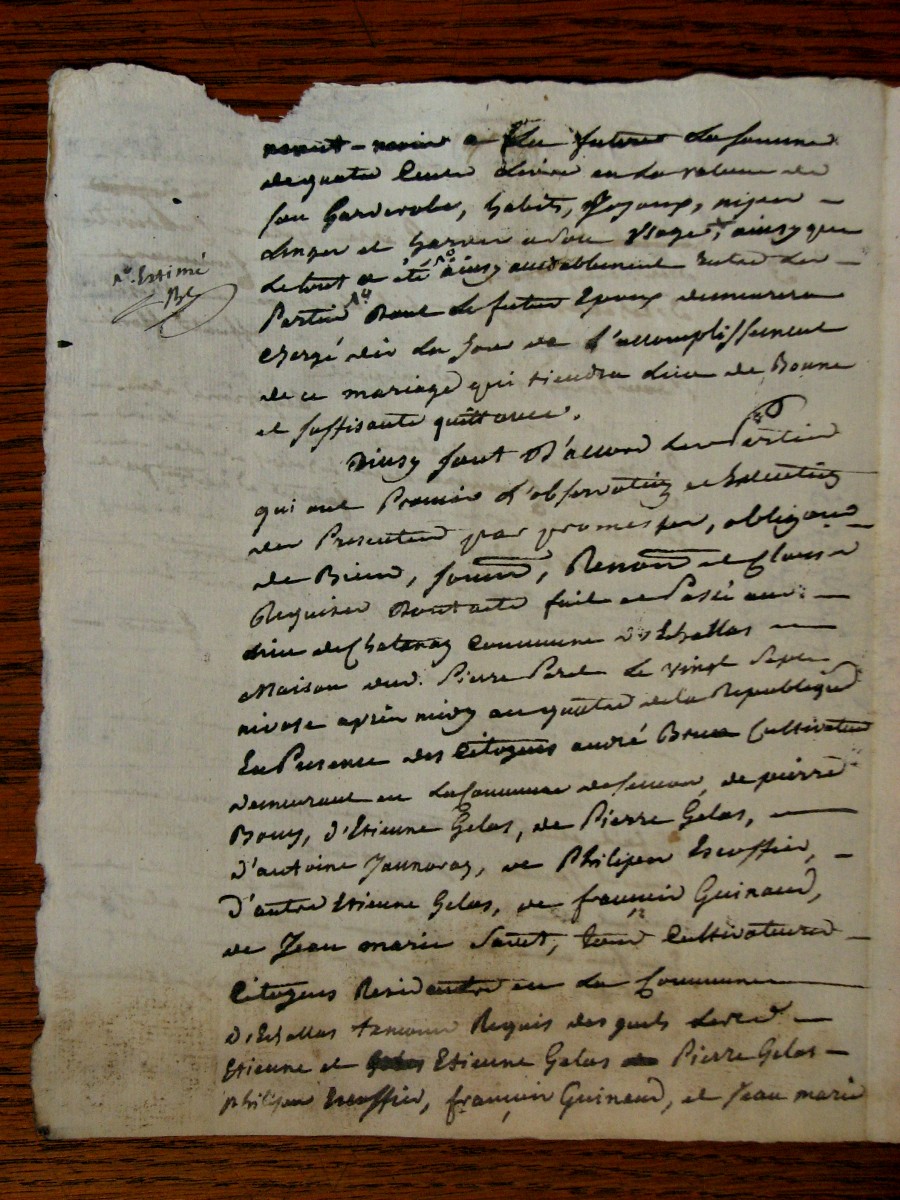 a la future la somme
de quatre Cents Livres en la valeur de
son Garderobe, habits, Joyaux, —
Linges et hardes a son Usage, ainsy que
Le tout a été No ainsy amiablement Entre les —
No. Estimé
Parties No Dont le futur Epoux demeurera
Chargé dès le Jour de L'accomplissement
de ce mariage qui tiendra Lieu de Bonne
et suffisante quittance.
Ainsy sont D'accord les Parties
qui ont Promis d'observer et Exécuter
les Presentes par promesses, obligaōn
de Biens, soumōn, Renonōn et Clauses
Requises Dont acte fait et Passé au —
Lieu de Chatanay Commune d'Echallas —
Maison dud. Pierre Le vingt Sept
nivose après midy an quatre de la Republique
En Presence des Citoyens andré Brun Cultivateur
demeurant en La Commune de de pierre
Bouy, d'Etienne Gelas, de Pierre Gelas, —
d'antoine Jaunoray, de Philipe Escoffier, —
D'autre Etienne Gelas, de françois Guinand,
de Jean marie tous Cultivateurs —
Citoyens Residants en La Commune
d'Echallas temoins Requis des quels Lesd —
Etienne et Etienne Gelas Pierre Gelas —
philipe Escoffier, françois Guinand, et Jean marie